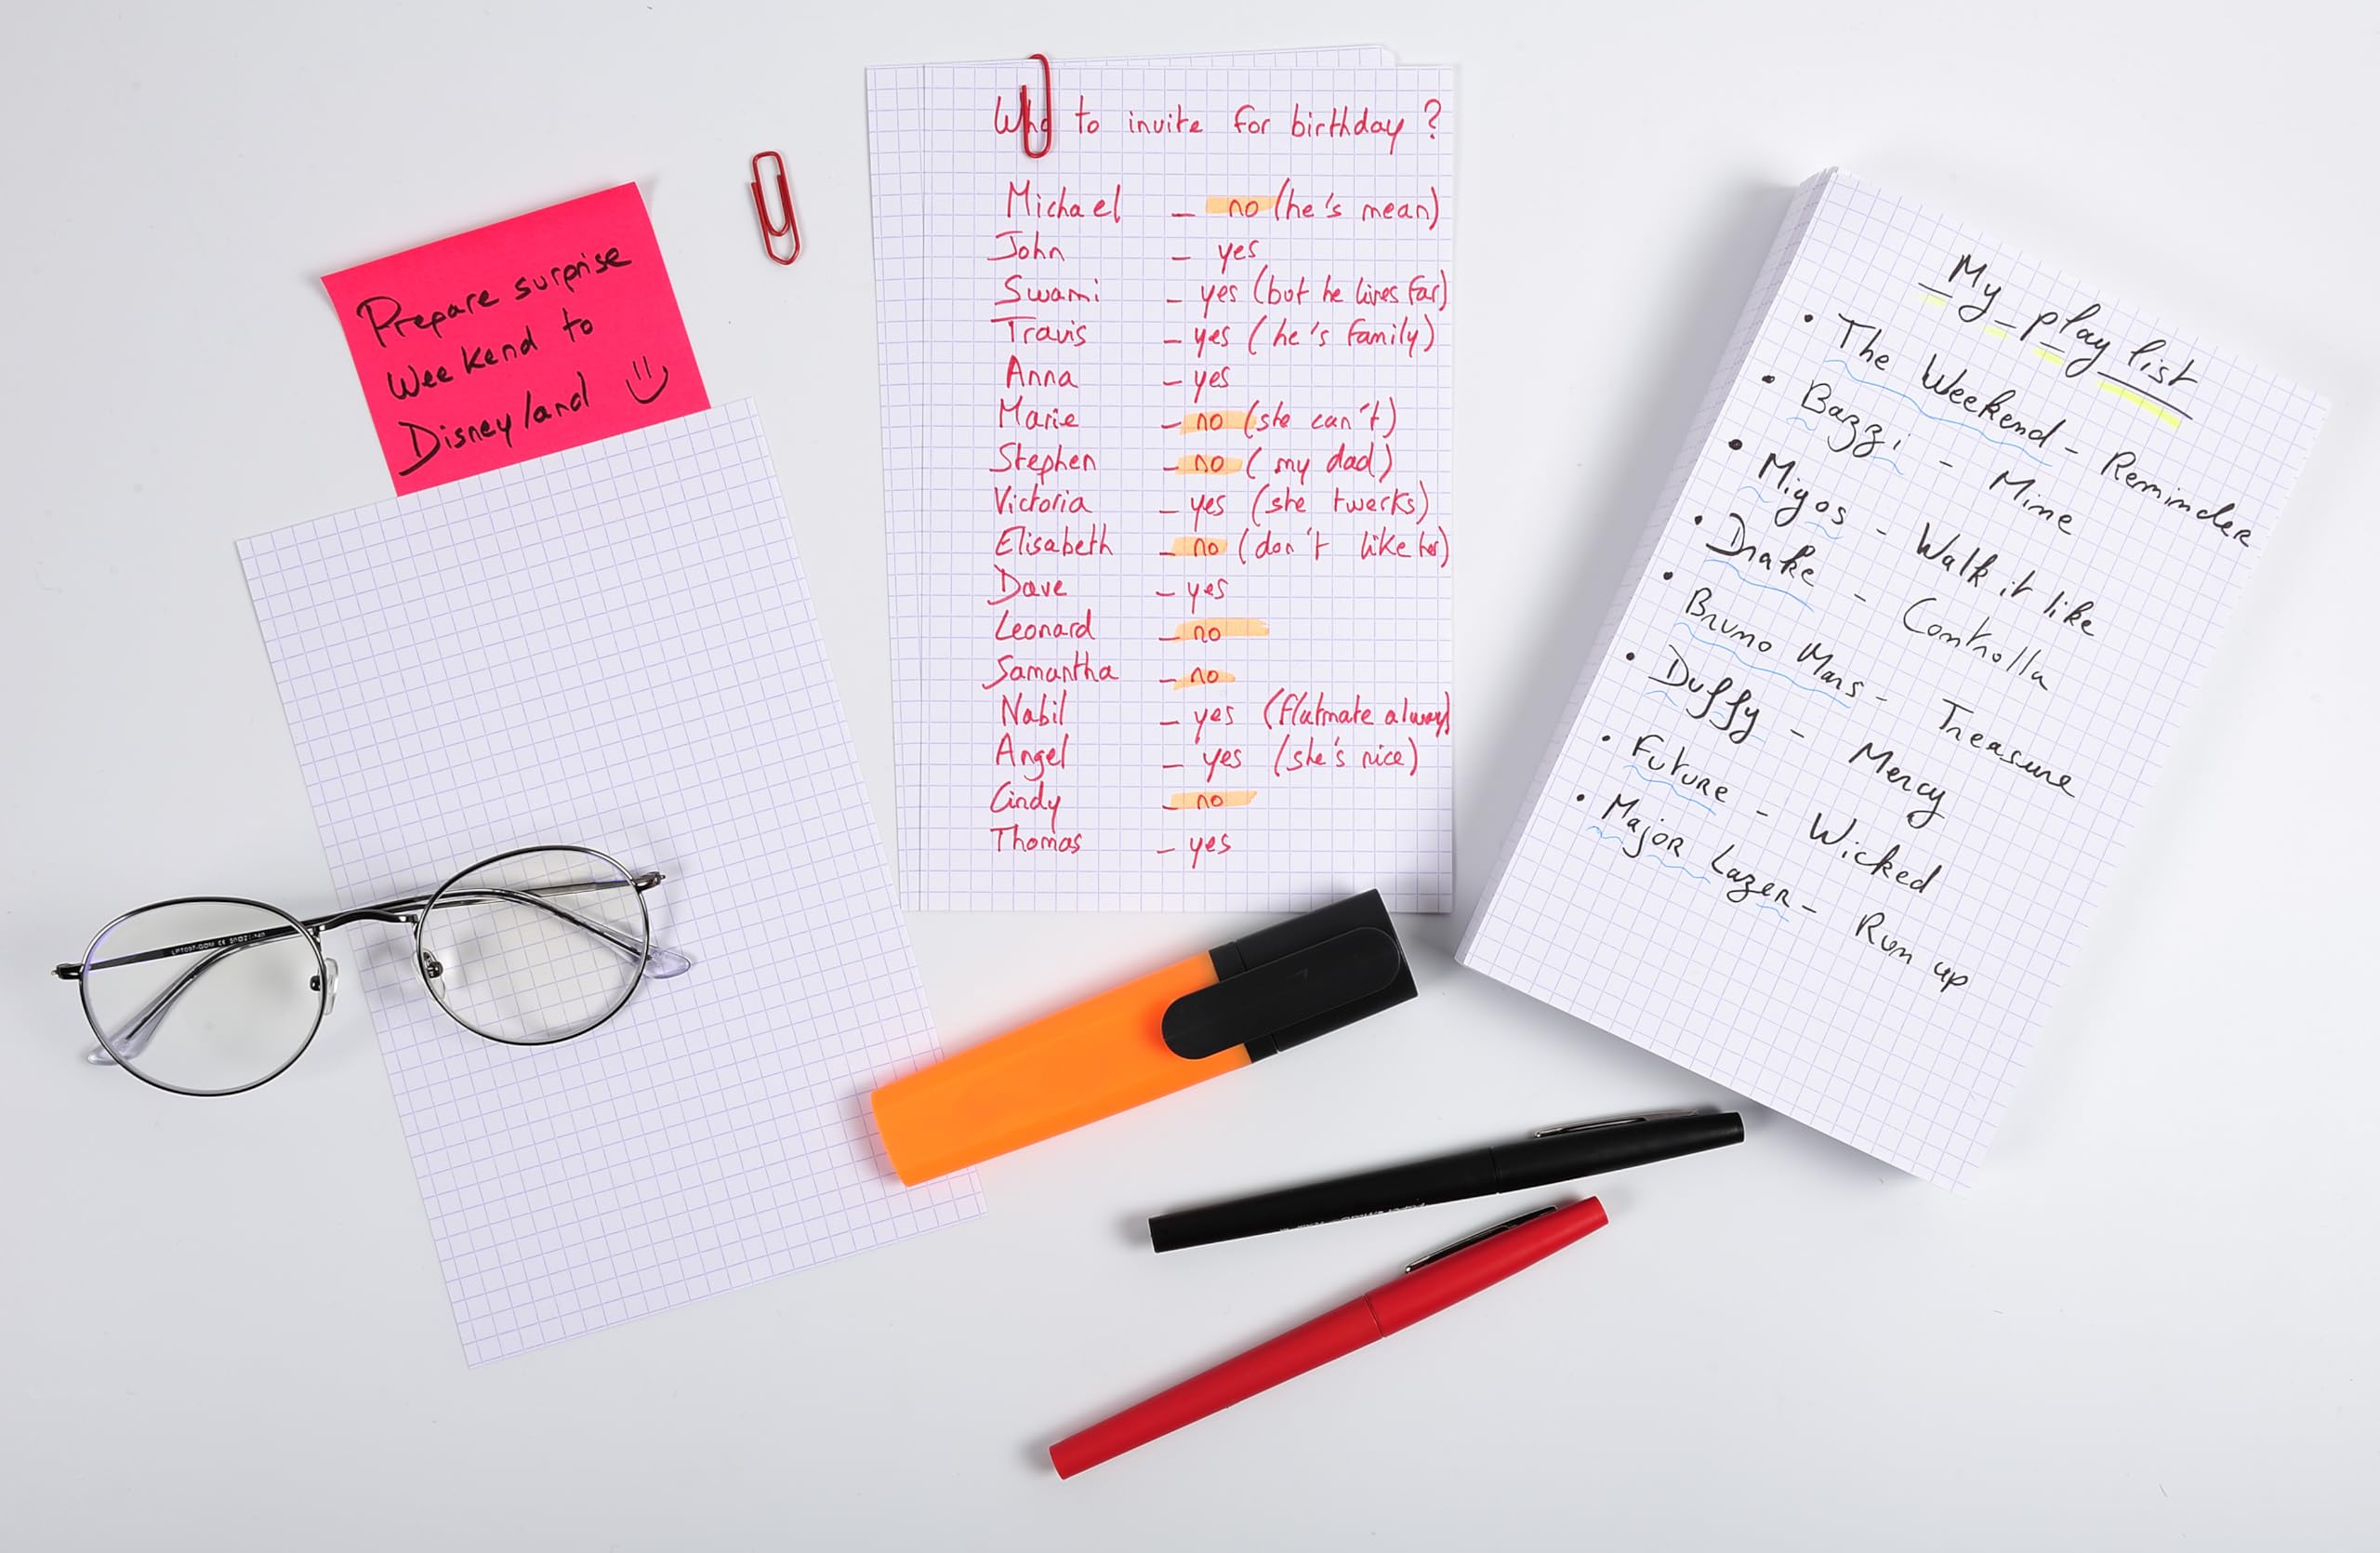 Prepare surprise
Weekend to
Disneyland
Who to invite for birthday ?
Michael - no (he's mean)
John - yes
Swami - yes (but he lives far)
Travis - yes (he's family)
Anna - yes
Marie - no (she can't)
Stephen - no (my dad)
Victoria - yes (she twerks)
Elisabeth - no (don't like her)
Dave - yes
Leonard - no
Samantha - no
Nabil - yes (flatmate always)
Angel - yes (she's nice)
Cindy - no
Thomas - yes
My play list
• The Weekend - Reminder
• Bazzi - Mine
• Migos - Walk it like
• Drake - Controlla
• Bruno Mars - Treasure
• Duffy - Mercy
• Future - Wicked
• Major Lazer - Run up